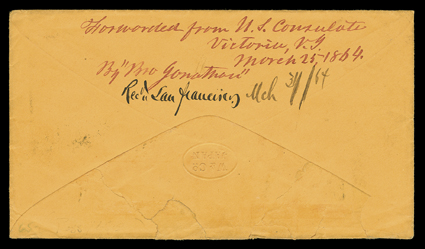 Forwarded from U.S. Consulate
Victoria, V.I.
March 25, 1864.
By "Bro Jonathan"
Rec'd San Francisco Mch 31/64